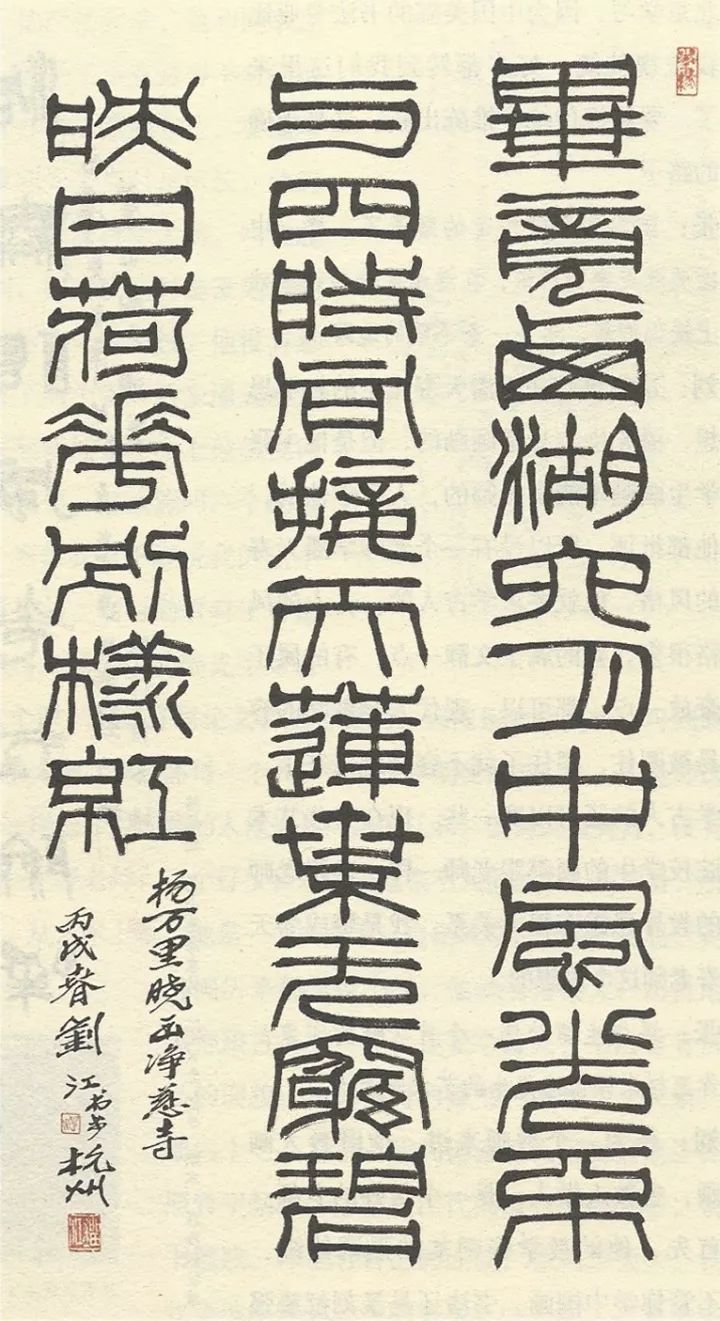 畢竟西湖六月中風光不
与四時同接天蓮葉无窮碧
映日荷華別樣紅
杨万里晓出净慈寺
丙戌春劉江书於杭州